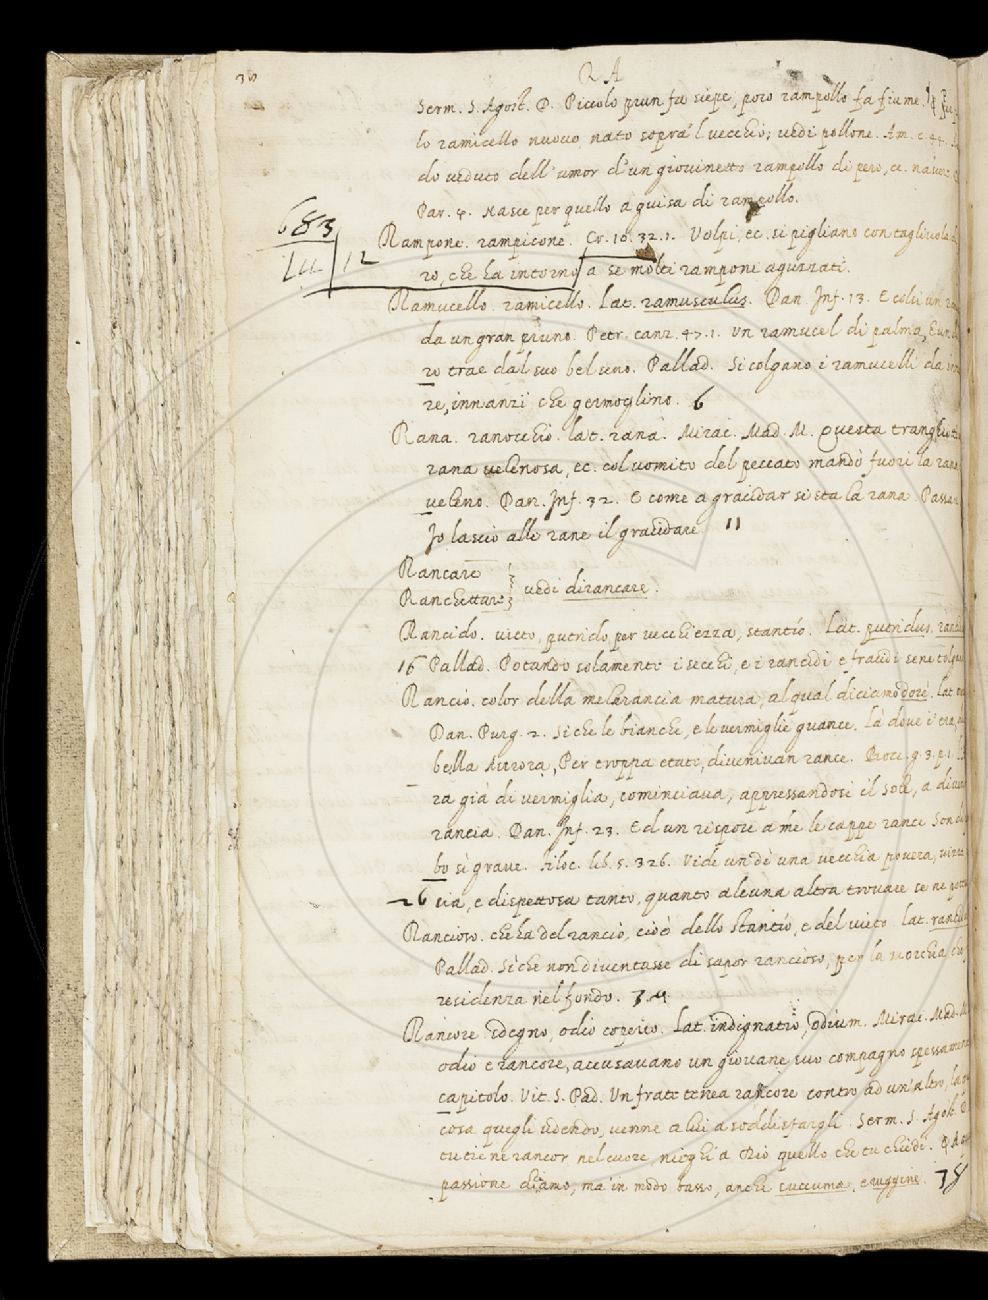 36
RA
Serm. S. Agost. D. Piccolo prun fa siepe, poro rampollo fa fiume. ¶
lo ramicello nuovo, nato sopra 'l vecchio; vedi pollone. Am. c. 44.
do veduto dell' umor d' un giovinetto rampollo di pero, ec.
Par. 4. Nasce per quello a guisa di rampollo.
683
Lu 12
Rampone. rampicone. Cr. 10. 32. 1. Volpi, ec. si pigliano con tagliuola di
ro, che ha intorno a se molti rampone aguzzati.
Ramucello. ramicello. Lat. ramusculus. Dan. Inf. 13. E colsi un
da un gran pruno. Petr. canz. 47. 1. Un ramucel di palma, E un
ro trae dal suo bel seno. Pallad. Si colgano i ramucelli da
re, innanzi che germoglino. 6
Rana. ranocchio. lat. rana. Mirac. Mad. M. Questa
rana velenosa, ec. col vomito del peccato mandò fuori la rana
veleno. Dan. Inf. 32. E come a gracidar si sta la rana. Passav.
Io lascio alle rane il gracidare. 11
Rancare
Ranchettare } vedi dirancare.
Rancido. vieto, putrido per vecchiezza, stantío. Lat. putridus.
16 Pallad. Potando solamente i secchi, e i rancidi e fracidi sene
Rancio. color della melarancia matura, al qual diciamo dorè. Lat.
Dan. Purg. 2. Si che le bianche, e le vermiglie guance, Là dove i' era,
bella Aurora, Per troppa etate, divenivan rance. Bocc. g. 3. p. 1.
ra già di vermiglia, cominciava, appressandosi il sole, a
rancia. Dan. Inf. 23. Ed un rispose a me le cappe rance Son
bo sì grave. Filoc. lib. 5. 326. Vide un dì una vecchia povera,
26 cia, e dispettosa tanto, quanto alcuna altra trovare se ne
Rancioso. che ha del rancio, cioè dello stantío, e del vieto. lat.
Pallad. Si che non diventasse di sapor rancioso, per la morchia,
residenza nel fondo.
Rancore. sdegno, odio coperto. Lat. indignatio, odium. Mirac. Mad. M.
odio e rancore, accusavano un giovane suo compagno spessamente
capitolo. Vit. S. Pad. Un frate tenea rancore contro ad un' altro,
cosa quegli udendo, venne a lui a soddisfargli. Serm. S. Agost.
tu tiene rancor nel cuore nieghi a Dio quello che tu chiedi.
passione diciamo, ma in modo basso, anche cuccuma, e ruggine. 38